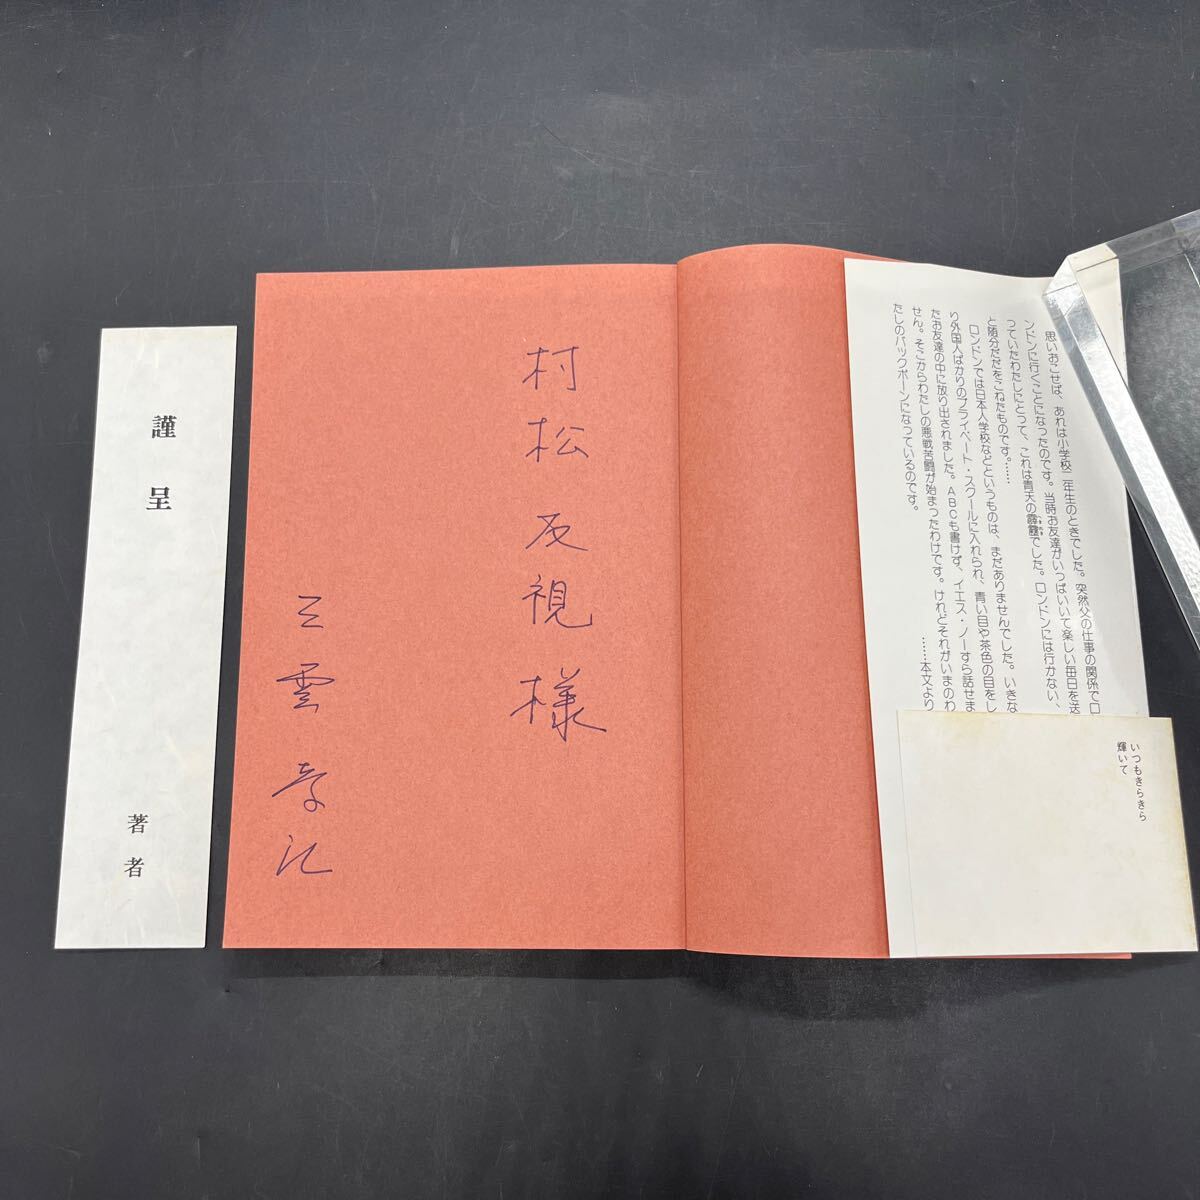 思いおこせば、あれは小学校二年生のときでした。突然父の仕事の関係でロ
ンドンに行くことになったのです。当時お友達がいっぱいいて楽しい毎日を送
っていたわたしにとって、これは青天の霹靂でした。ロンドンには行かない、
と随分だだをこねたものです。……
ロンドンでは日本人学校などというものは、まだありませんでした。いきな
り外国人ばかりのプライベート・スクールに入れられ、青い目や茶色の目をし
たお友達の中に放り出されました。ABCも書けず、イエス・ノーすら話せま
せん。そこからわたしの悪戦苦闘が始まったわけです。けれどそれがいまのわ
たしのバックボーンになっているのです。
……本文より
いつもきらきら
輝いて
村松友視様
三雲孝江
謹呈
著者